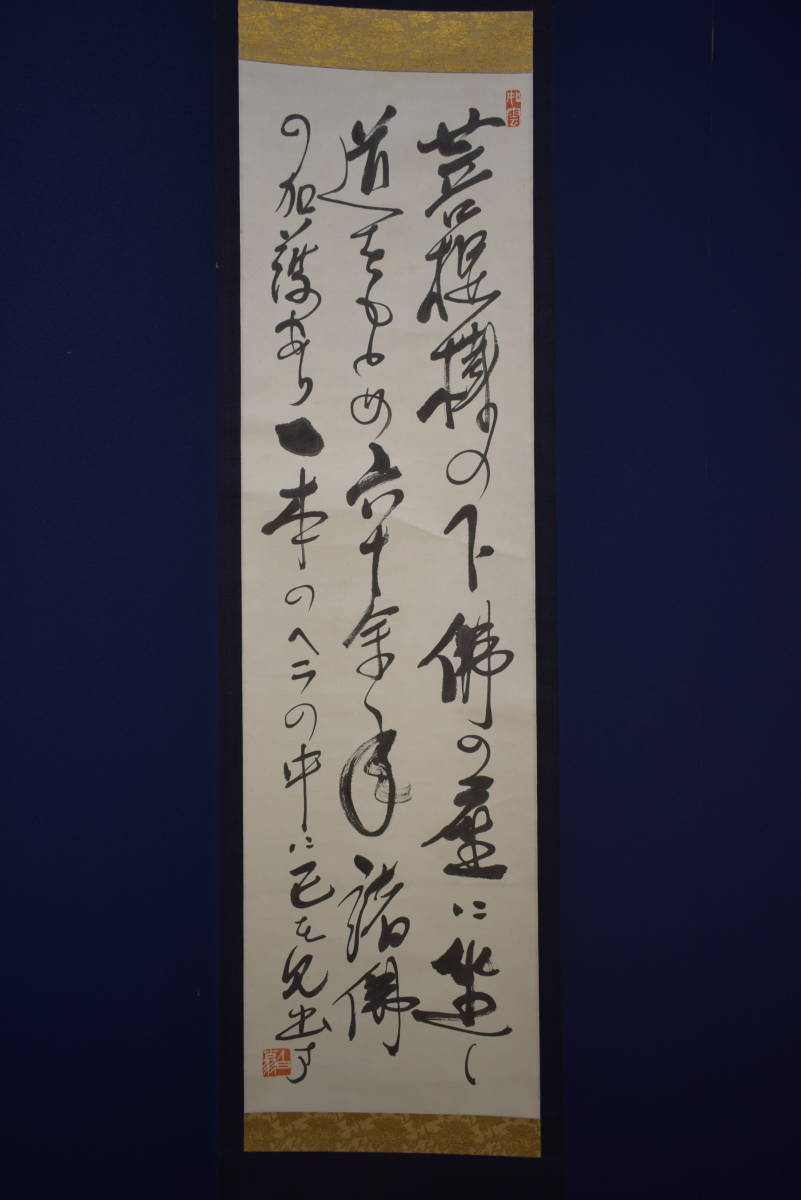 菩提樹の下佛の座に坐し
道をもとめ六十余年諸佛
の加護あり一本のヘラの中に己を見出す